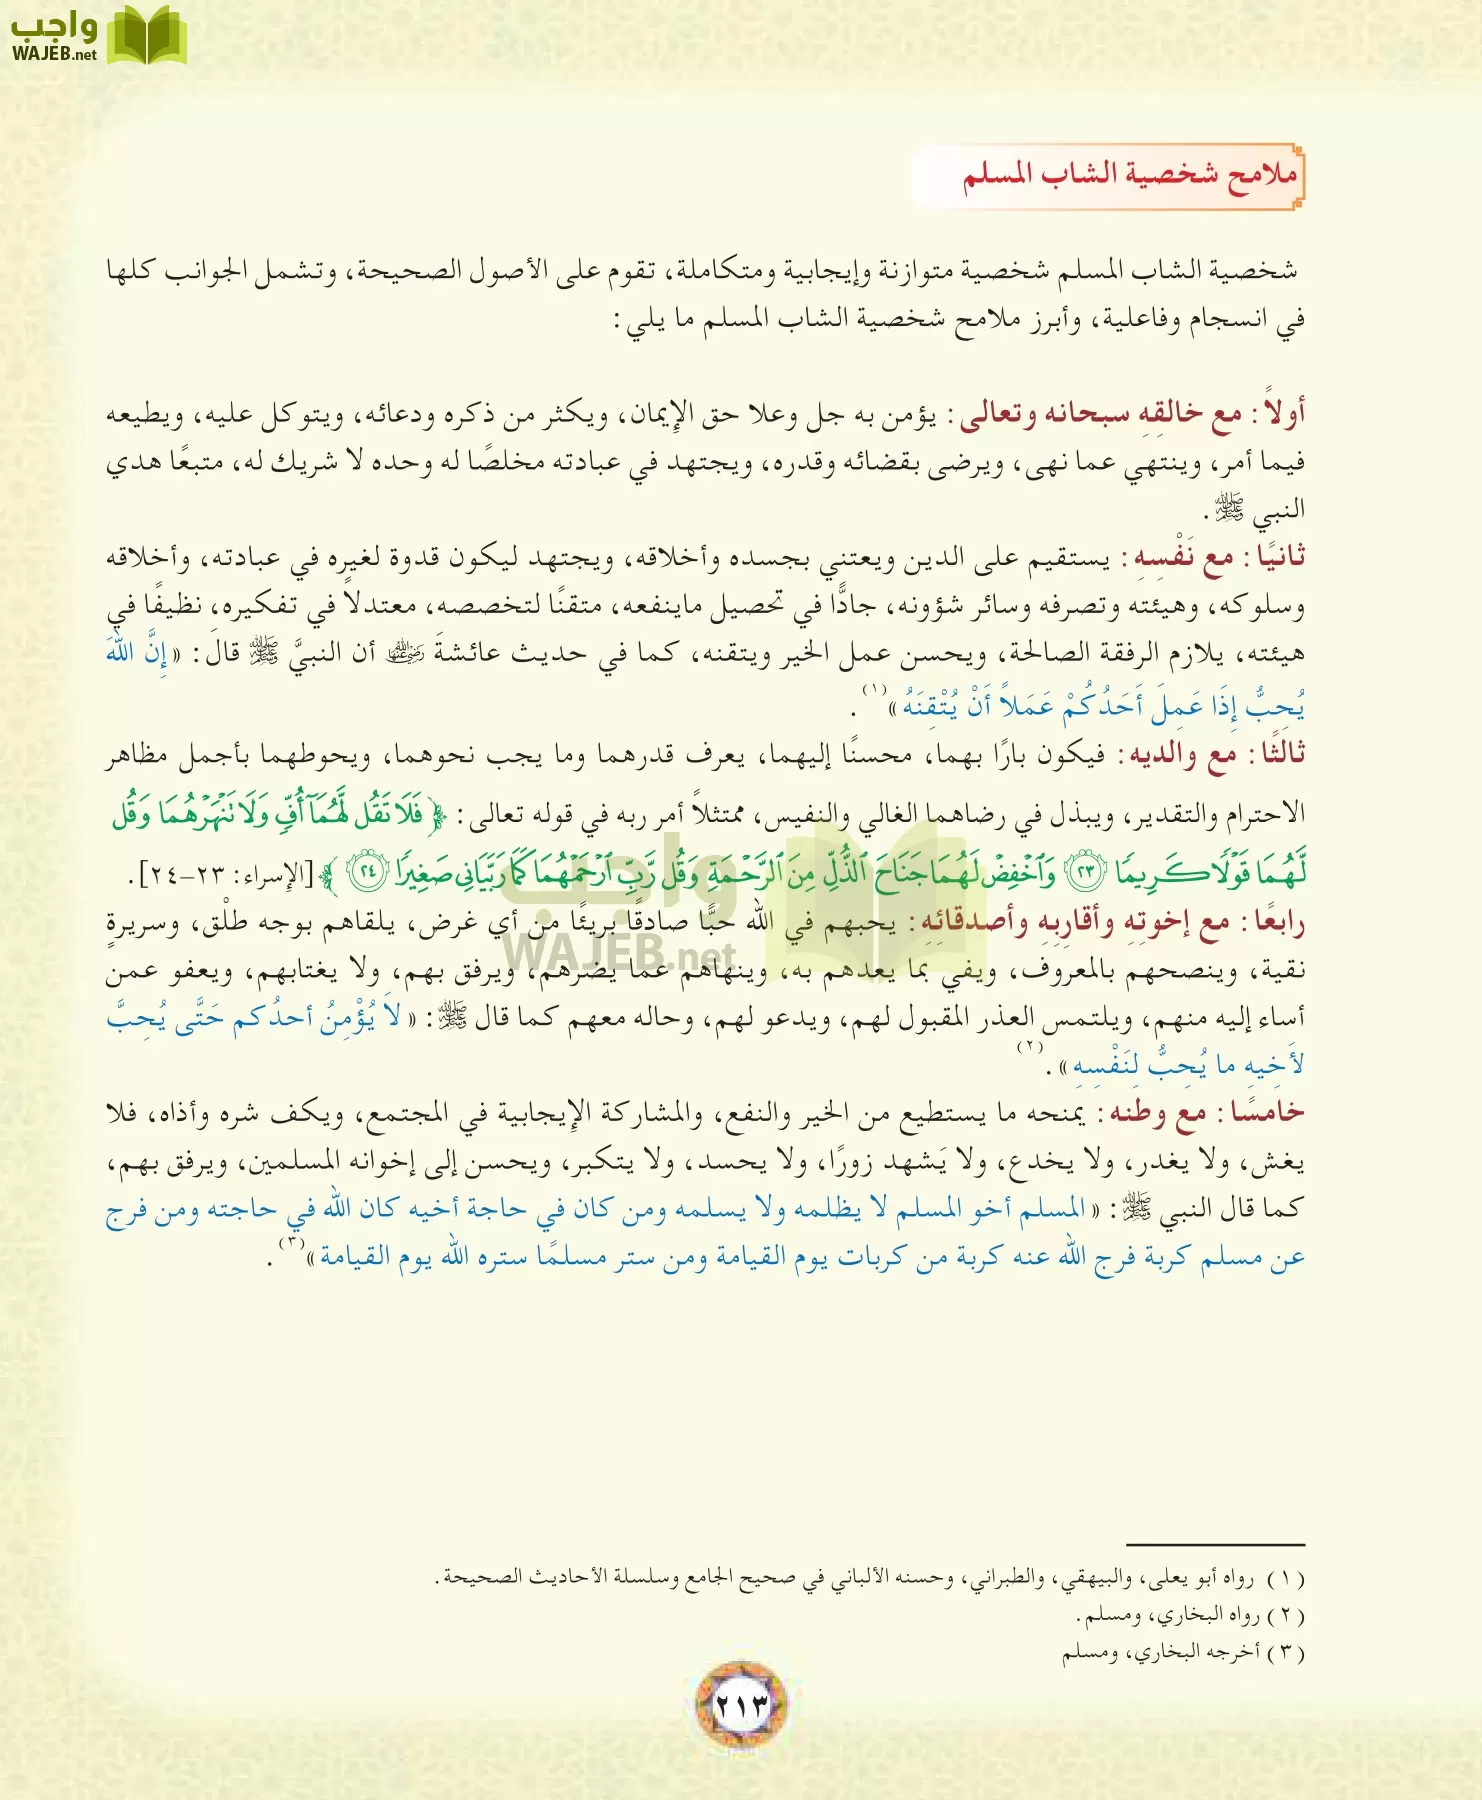 واجب
WAJEB.net
ملامح شخصية الشاب المسلم
شخصية الشاب المسلم شخصية متوازنة وإيجابية ومتكاملة، تقوم على الأصول الصحيحة، وتشمل الجوانب كلها
في انسجام وفاعلية، وأبرز ملامح شخصية الشاب المسلم ما يلي:
أولاً: مع خالقِهِ سبحانه وتعالى: يؤمن به جل وعلا حق الإِيمان، ويكثر من ذكره ودعائه، ويتوكل عليه، ويطيعه
فيما أمر، وينتهي عما نهى، ويرضى بقضائه وقدره، ويجتهد في عبادته مخلصًا له وحده لا شريك له، متبعًا هدي
النبي ﷺ.
ثانيًا: مع نَفْسِهِ: يستقيم على الدين ويعتني بجسده وأخلاقه، ويجتهد ليكون قدوة لغيره في عبادته، وأخلاقه
وسلوكه، وهيئته وتصرفه وسائر شؤونه، جادًّا في تحصيل ماينفعه، متقنًا لتخصصه، معتدلاً في تفكيره، نظيفًا في
هيئته، يلازم الرفقة الصالحة، ويحسن عمل الخير ويتقنه، كما في حديث عائشةَ رضي الله عنها أن النبيَّ ﷺ قالَ: «إِنَّ اللهَ
يُحِبُّ إِذَا عَمِلَ أَحَدُكُمْ عَمَلاً أَنْ يُتْقِنَهُ»(١).
ثالثًا: مع والديه: فيكون بارًا بهما، محسنًا إليهما، يعرف قدرهما وما يجب نحوهما، ويحوطهما بأجمل مظاهر
الاحترام والتقدير، ويبذل في رضاهما الغالي والنفيس، ممتثلاً أمر ربه في قوله تعالى: ﴿فَلَا تَقُل لَّهُمَآ أُفٍّ وَلَا تَنْهَرْهُمَا وَقُل
لَّهُمَا قَوْلًا كَرِيمًا ٢٣ وَٱخْفِضْ لَهُمَا جَنَاحَ ٱلذُّلِّ مِنَ ٱلرَّحْمَةِ وَقُل رَّبِّ ٱرْحَمْهُمَا كَمَا رَبَّيَانِى صَغِيرًا ٢٤﴾ [الإسراء: ٢٣-٢٤].
رابعًا: مع إخوتِهِ وأقارِبِهِ وأصدقائِهِ: يحبهم في الله حبًّا صادقًا بريئًا من أي غرض، يلقاهم بوجه طلْق، وسريرةٍ
نقية، وينصحهم بالمعروف، ويفي بما يعدهم به، وينهاهم عما يضرهم، ويرفق بهم، ولا يغتابهم، ويعفو عمن
أساء إليه منهم، ويلتمس العذر المقبول لهم، ويدعو لهم، وحاله معهم كما قال ﷺ: «لاَ يُؤْمِنُ أحدُكم حَتَّى يُحِبَّ
لأَخِيهِ ما يُحِبُّ لِنَفْسِهِ».(٢)
خامسًا: مع وطنه: يمنحه ما يستطيع من الخير والنفع، والمشاركة الإِيجابية في المجتمع، ويكف شره وأذاه، فلا
يغش، ولا يغدر، ولا يخدع، ولا يَشهد زورًا، ولا يحسد، ولا يتكبر، ويحسن إلى إخوانه المسلمين، ويرفق بهم،
كما قال النبي ﷺ: «المسلم أخو المسلم لا يظلمه ولا يسلمه ومن كان في حاجة أخيه كان الله في حاجته ومن فرج
عن مسلم كربة فرج الله عنه كربة من كربات يوم القيامة ومن ستر مسلمًا ستره الله يوم القيامة»(٣).
واجب
WAJEB.net
(١) رواه أبو يعلى، والبيهقي، والطبراني، وحسنه الألباني في صحيح الجامع وسلسلة الأحاديث الصحيحة.
(٢) رواه البخاري، ومسلم.
(٣) أخرجه البخاري، ومسلم
٢١٣